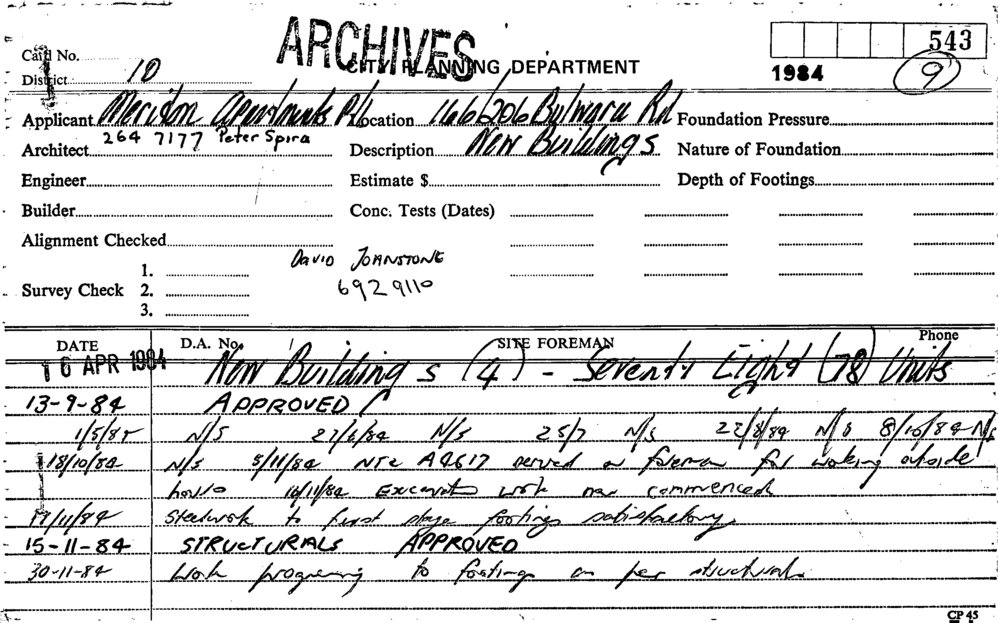 ARCHIVES
543
Card No.
CITY PLANNING DEPARTMENT
1984
9
District 10
Applicant Meriton Apartments P/L Location 166/206 Bulwara Rd Foundation Pressure
264 7177 Peter Spira
Architect Description New Buildings Nature of Foundation
Engineer Estimate $ Depth of Footings
Builder Conc. Tests (Dates)
Alignment Checked
David Johnstone
1.
Survey Check 2. 692 9110
3.
DATE D.A. No. SITE FOREMAN Phone
16 APR 1984 New Buildings (4) - Seventy Eight (78) Units
13-9-84 APPROVED
1/5/85 N/S 27/6/84 N/S 25/7 N/S 22/8/84 N/S 8/10/84 N/S
18/10/84 N/S 5/11/84 NTC A4617 served on foreman for working outside
hours 10/11/84 Excavation work now commenced
Steelwork to first stage footings satisfactory
15-11-84 STRUCTURALS APPROVED
30-11-84 Work progressing to footings as per structurals
CP 45